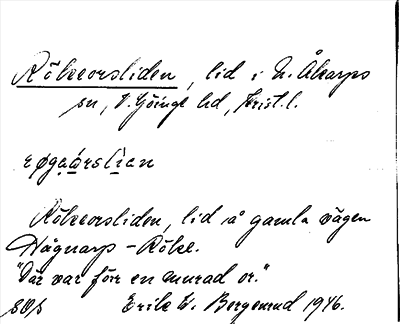 Rökeorsliden, lid i N. Åkarps
sn, V. Göinge hd, Krist. l.
røgaårslian
Rökeorsliden, lid å gamla vägen
Hågnarp - Röke.
"Där var förr en murad or."
SOS Erik W. Bergenrud 1946.